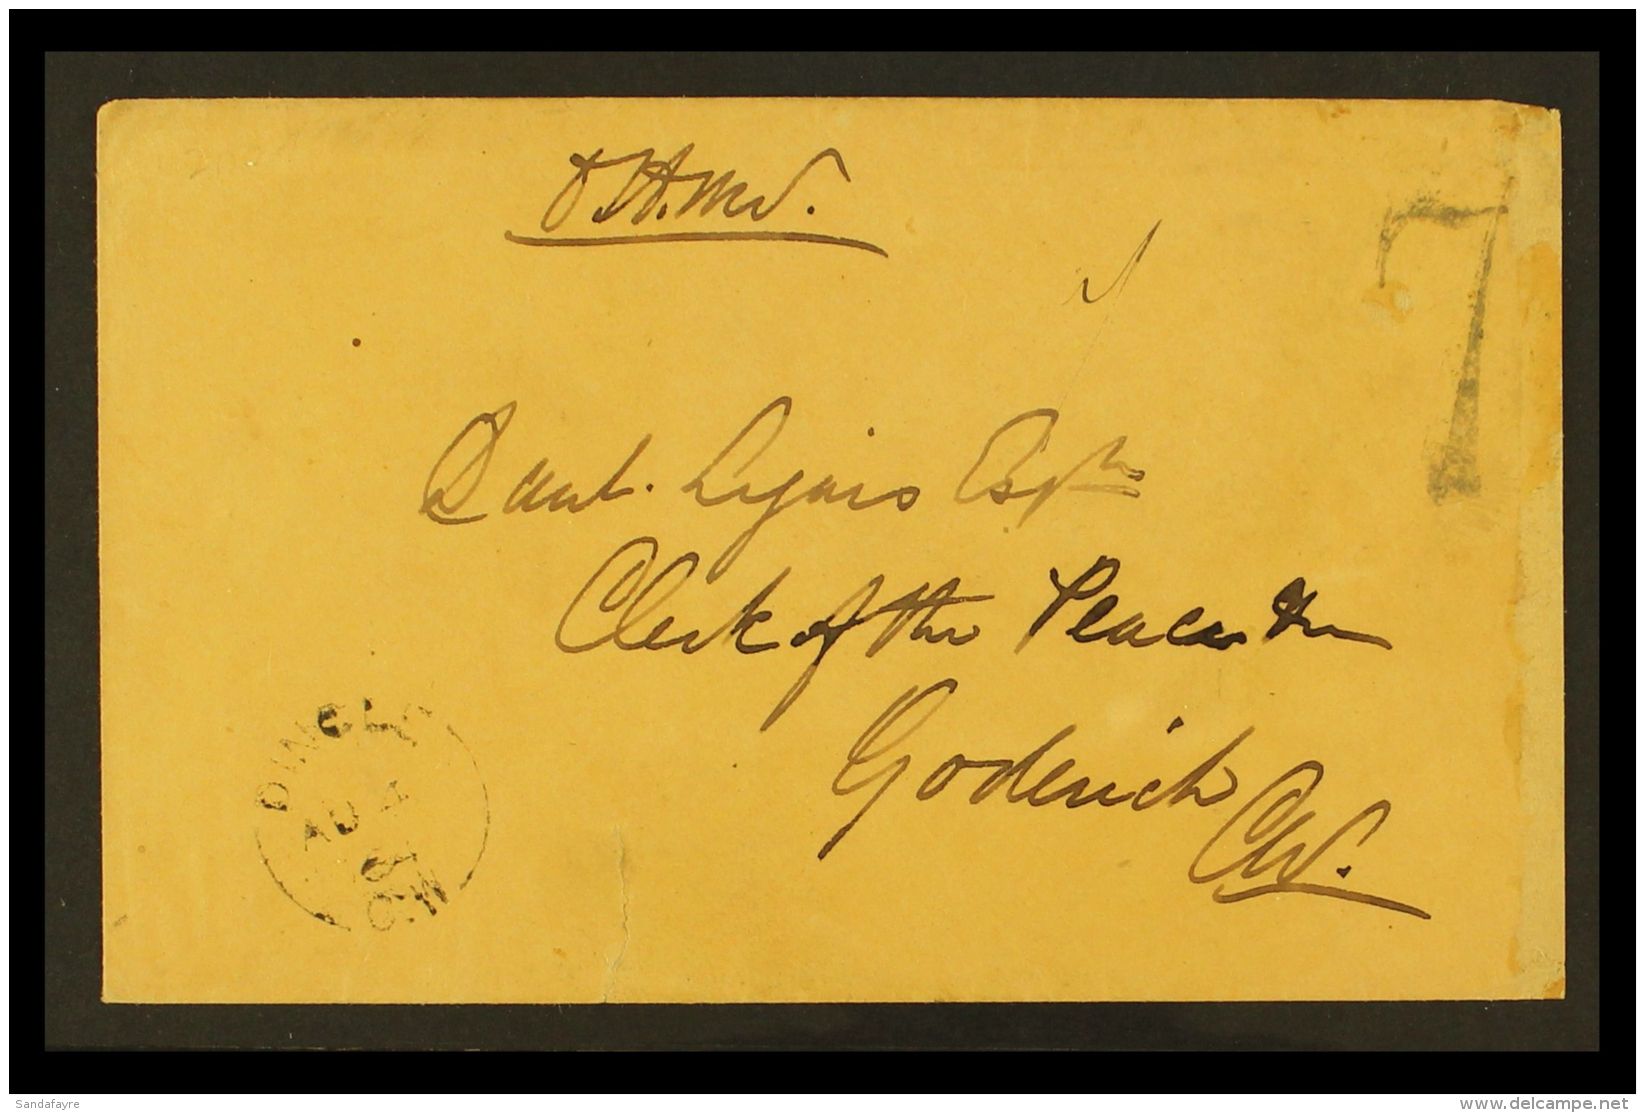 O.H.M.S.
7
Danl. Lizars Esqre
Clerk of the Peace &c
Goderich
C.W.
AU 4
C.W
Sandafayre
www.delcampe.net